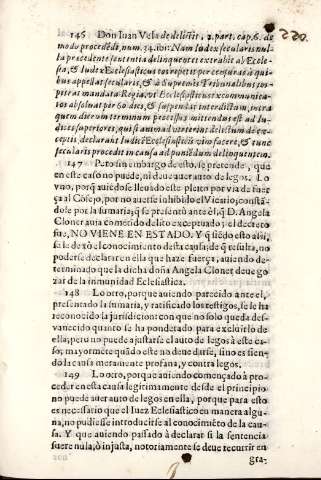 220.
146 Don Iuan Vela de delictis, 2. part. cap. 6. de
modo procedẽdi, num. 34. ibi: Nam Iudex secularis nul-
la precedente sententia delinquentes extrahit ab Eccle-
sia, & Iudex Ecclesiasticus eos repetit per censuras à qui-
bus appellat secularis, & à Supremis Tribunalibus im-
petrat mandata Regia, vt Ecclesiasticus excommunica-
tos absoluat per 60 dies, & suspendat interdictum, intra
quem dierum terminum processus mittendus est ad Iu-
dices superiores, qui si animaduerterint delictum de ex-
ceptis, declarant Iudicẽ Ecclesiasticũ vim facere, & tunc
secularis procedit in causa ad puniẽdum delinquentem.
147 Pero sin embargo de esto, se pretende, que
en este caso no puede, ni deue auer auto de legos. Lo
vno, porq̃ auiẽdose lleuado este pleito por via de fuer-
ça al Cõsejo, por no auerse inhibido el Vicario, constã-
dole por la sumaria, q̃ se presentò ante èl, q̃ D. Angela
Clonet auia cometido delito exceptuado; el decreto
fue, NO VIENE EN ESTADO. Y quãdo esto assi,
se le dexò el conocimiento desta causa; de q̃ resulta, no
poderse declarar en ella que haze fuerça, auiendo de-
terminado que la dicha doña Angela Clonet deue go-
zar de la inmunidad Ecclesiastica.
148 Lo otro, porque auiendo parecido ante el,
presentado la sumaria, y ratificado los testigos, se le ha
reconocido la jurisdicion: con que no solo queda des-
vanecido quanto se ha pondetado para excluirlo de
ella, pero no puede ajustarse el auto de legos à este ca-
so; mayormẽte quãdo este no deue darse, sino es siem-
do la causa meramente profana, y contra legos.
149 Lo otro, porque auiendo començado à pro-
ceder en esta causa legitimamente desde el principio
no puede auer auto de legos en ella, porque para esto
es necessario que el Iuez Eclesiastico en manera algu-
na, no pudiesse introducirse al conocimiẽto de la cau-
sa. Y que auiendo passado à declarar si la sentencia
fuere nula, ò injusta, notoriamente se deue recurrir en
gra-